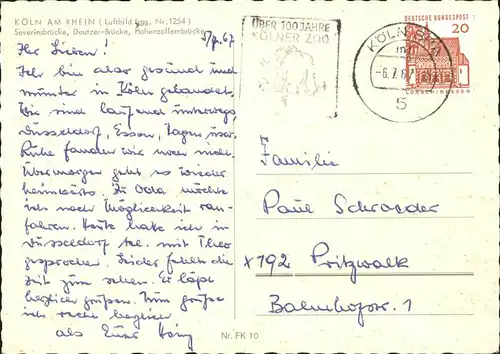 KÖLN AM RHEIN ( Luftbild Frg. Nr. 1254 )
Severinsbrücke, Deutzer-Brücke, Hohenzollernbrücke
5/7. 67
Ihr Lieben!
Ich bin also gesund und
munter in Köln gelandet.
Wir sind laufend unterwegs,
Düsseldorf, Essen, Hagen usw.
Ruhe fanden wir noch nicht.
Übermorgen geht es wieder
heimwärts. Zu Oda möchte
ich nach Möglichkeit ran-
fahren. Heute habe ich in
Düsseldorf tel. mit Theo
gesprochen. Leider fehlen die
Zeit zum sehen. Er läßt
herzlich grüßen. Nun grüße
ich recht herzlich
als Euer
ÜBER 100 JAHRE
KÖLNER ZOO
KÖLN
-6.7.67
5
DEUTSCHE BUNDESPOST
20
LORSCH/HESSEN
Familie
Paul Schroeder
x192 Pritzwalk
Bahnhofstr. 1
Nr. FK 10